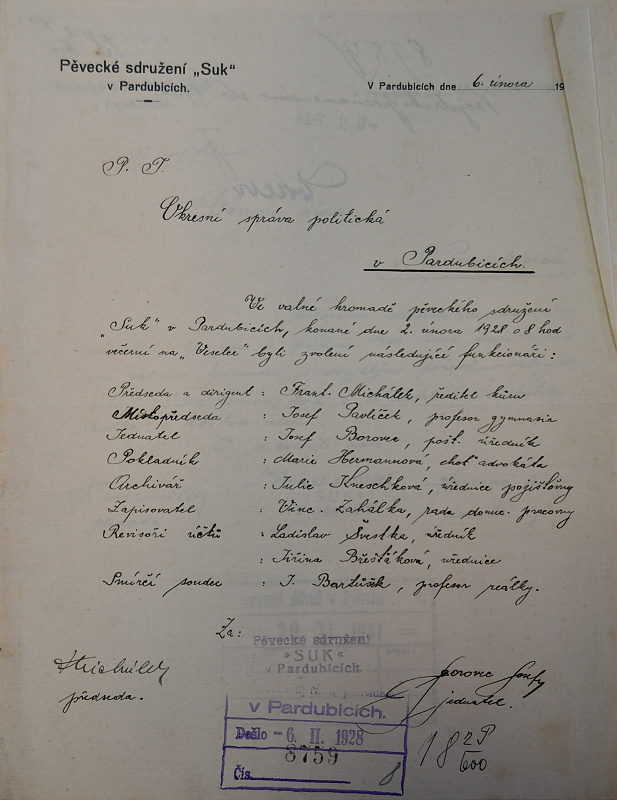 Pěvecké sdružení „Suk“
v Pardubicích.
V Pardubicích dne 6. února 19
P. T.
Okresní správa politická
v Pardubicích.
Ve valné hromadě pěveckého sdružení
„Suk“ v Pardubicích, konané dne 2. února 1928 o 8 hod
večerní na „Veselce“ byli zvoleni následující funkcionáři:
Předseda a dirigent : Frant. Michálek, ředitel kůru
Místopředseda : Josef Pavlíček, profesor gymnasia
Jednatel : Josef Borovec, pošt. úředník
Pokladník : Marie Hermannová, choť advokáta
Archivář : Julie Kneschková, úřednice pojišťovny
Zapisovatel : Vinc. Zahálka, rada donuc. pracovny
Revisoři účtů : Ladislav Švestka, úředník
Jiřina Břešťáková, úřednice
Smírčí soudce : J. Bartůšek, profesor reálky.
Za:
Pěvecké sdružení
„SUK“
v Pardubicích
Michálek
předseda.
Borovec Josef
jednatel.
v Pardubicích.
Došlo - 6. II. 1928
8759
Čís. 8
18 2P/600